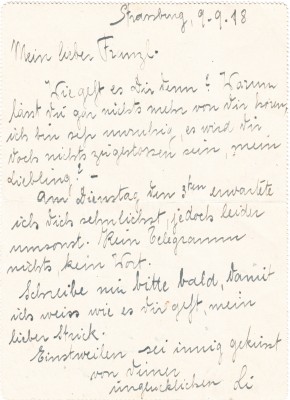 Strassburg, 9-9.18
Mein lieber Franzl.
Wie geht es Dir denn? Warum
lässt du gar nichts mehr von dir hören,
ich bin sehr unruhig, es wird dir
doch nichts zugestossen sein, mein
Liebling? -
Am Dienstag den 3ten erwartete
ich dich sehnlichst, jedoch leider
umsonst. Kein Telegramm
nichts kein Wort.
Schreibe mir bitte bald, damit
ich weiss wie es dir geht, mein
lieber Strick.
Einstweilen sei innig geküsst
von deiner
unglücklichen Li